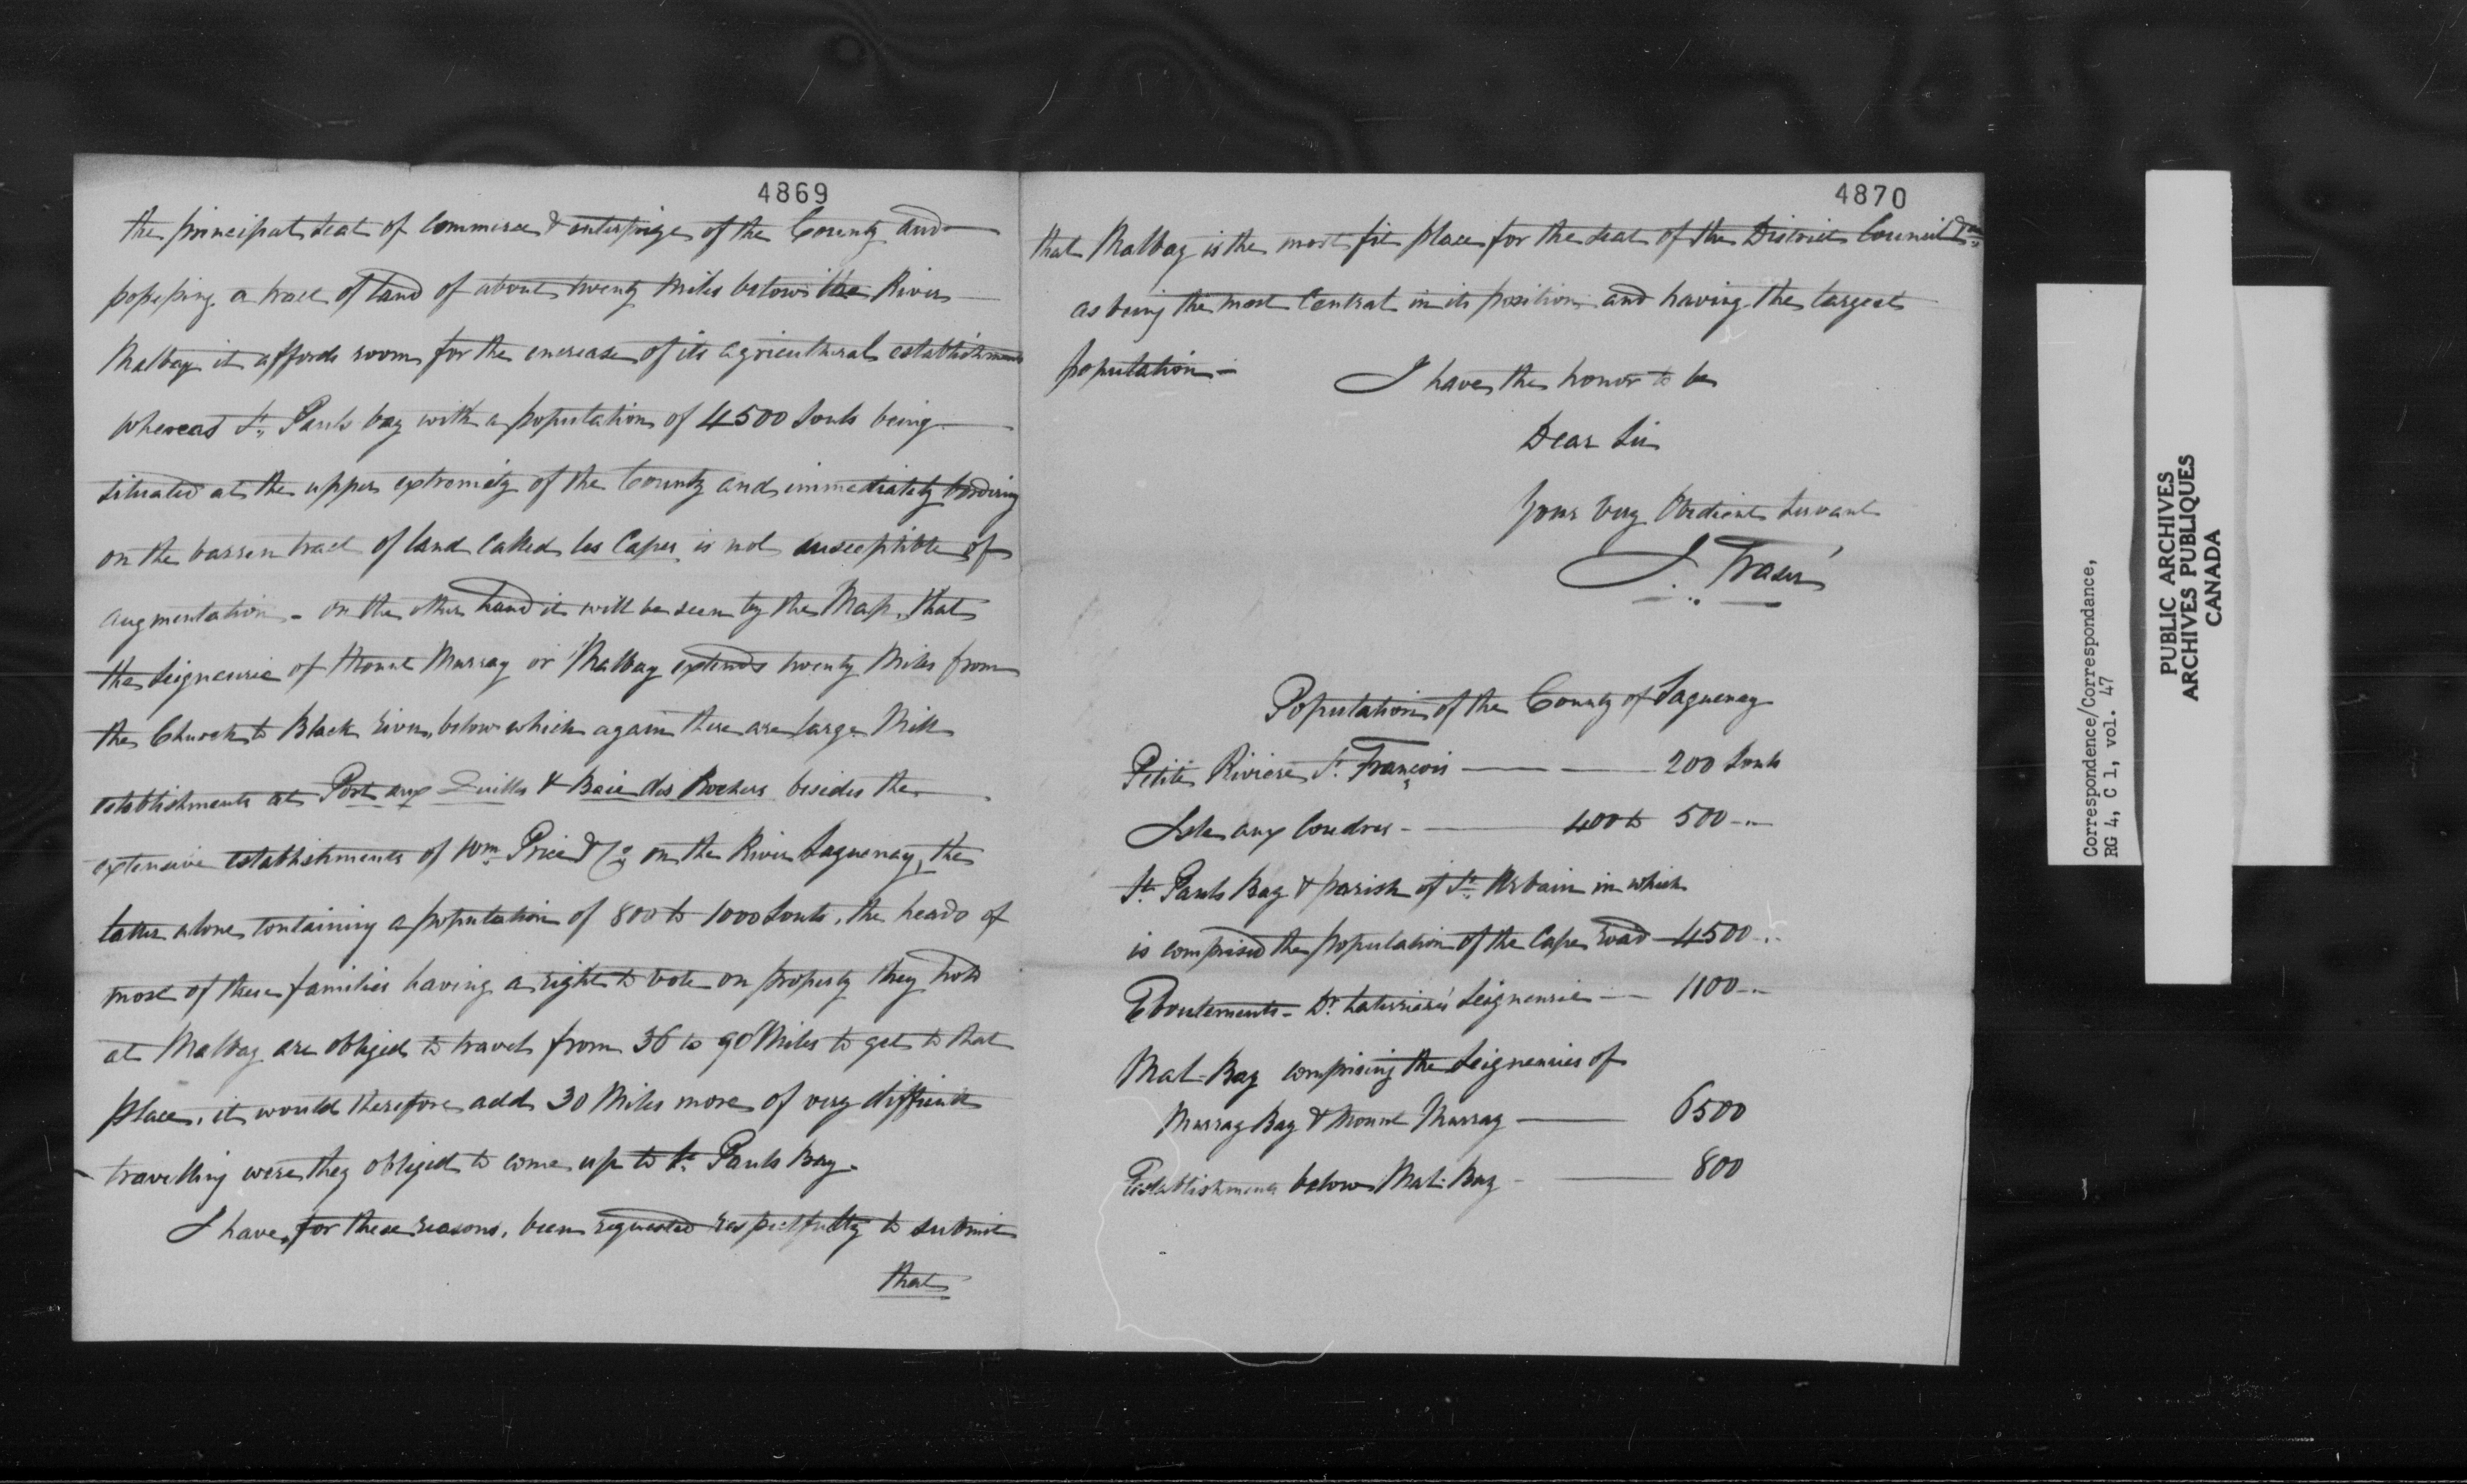 4869
the principal seat of Commerce & enterprize of the County and
possessing a tract of land of about twenty Miles below the River
Malbay it affords room for the increase of its agricultural establishments
whereas St. Pauls bay with a population of 4500 Souls being
situated at the upper extremity of the County and immediately bordering
on the barren tract of land called les Caps is not susceptible of
augmentation - on the other hand it will be seen by the Map, that
the Seigneurie of Mount Murray or Malbay extends twenty Miles from
the Church to Black river, below which again there are large Mill
establishments at Port aux Quilles & Baie des Rochers besides the
extensive establishments of Wm. Price & Co. on the River Saguenay, the
latter alone containing a population of 800 to 1000 Souls, the heads of
most of these families having a right to vote on property they hold
at Malbay are obliged to travel from 36 to 90 Miles to get to that
place, it would therefore add 30 Miles more of very difficult
travelling were they obliged to come up to St. Pauls Bay.
I have, for these reasons, been requested respectfully to submit
that
4870
that Malbay is the most fit place for the seat of the District Council &ca.
as being the most Central in its position and having the largest
population -
I have the honor to be
Dear Sir
Your Very Obedient Servant
J. Fraser
Population of the County of Saguenay
Petite Riviere St. François — 200 Souls
Isle aux Coudres - — 400 to 500 - "
St. Pauls Bay & parish of St. Urbain in which
is comprised the population of the Capes road - 4500 - "
Eboulements - Dr. Laterriere's Seigneurie — 1100 - "
Mal-Bay comprising the Seigneuries of
Murray Bay & Mount Murray — 6500
Establishments below Mal-Bay - — 800
Correspondence/Correspondance,
RG 4, C 1, vol. 47
PUBLIC ARCHIVES
ARCHIVES PUBLIQUES
CANADA